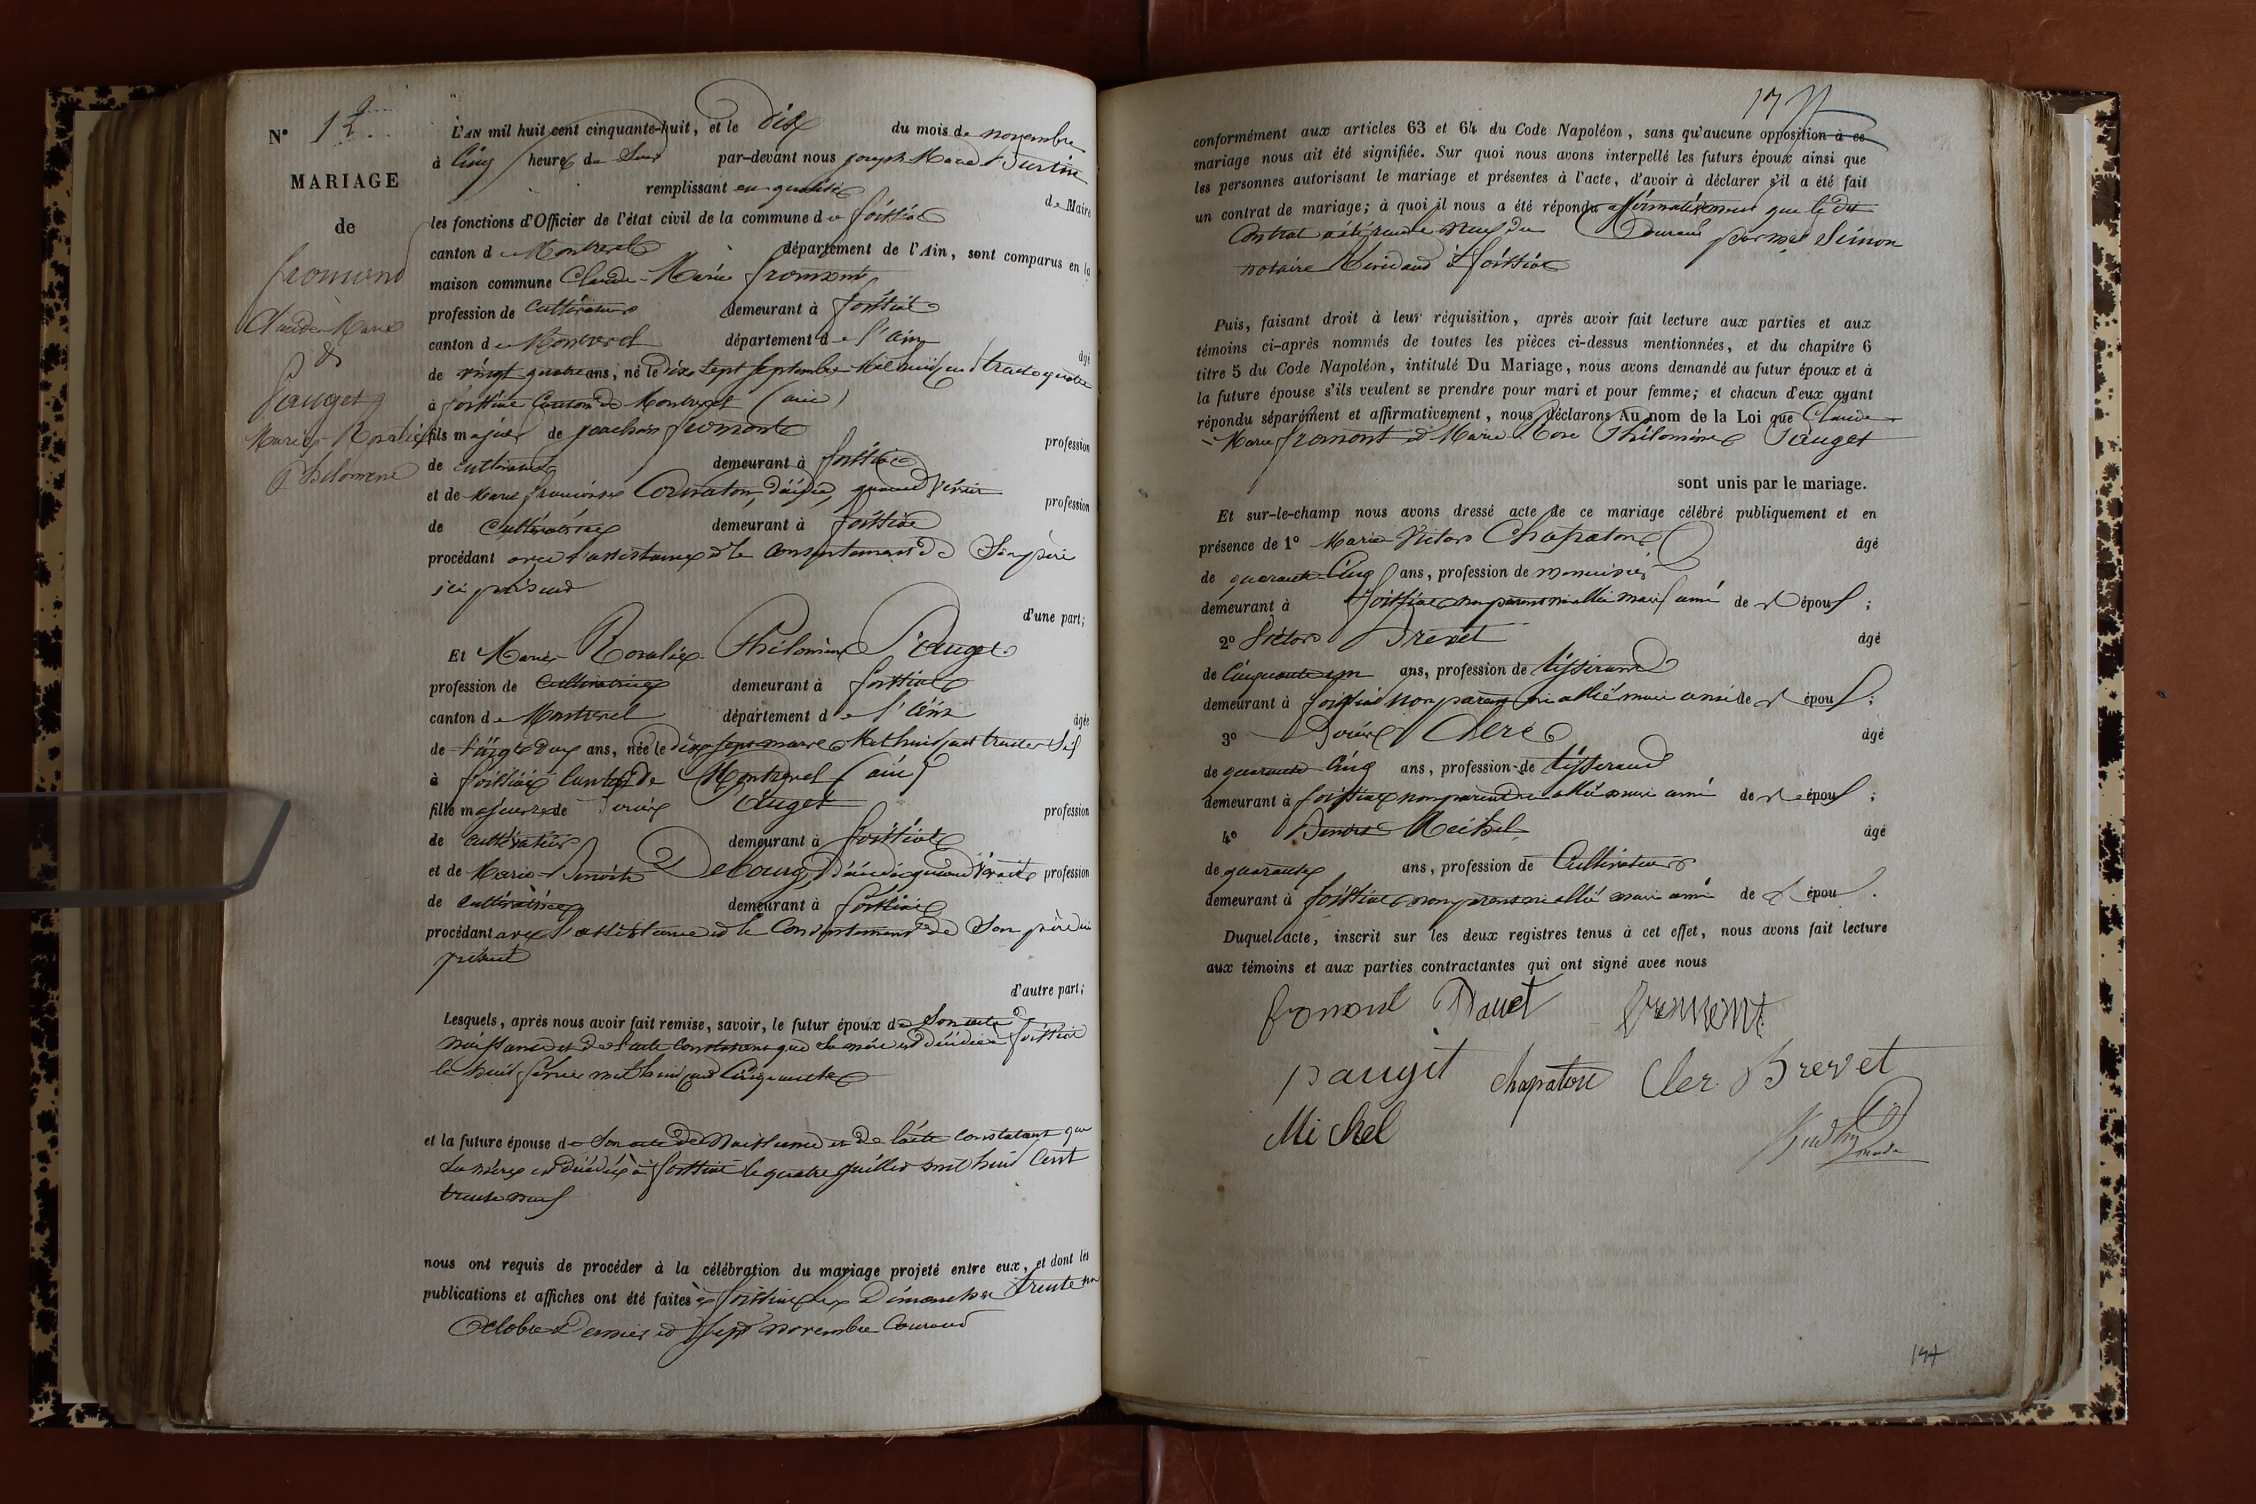 N° 12
MARIAGE
de
fromond
Claude Marie
&
Pauget
Marie Rosalie
Philomene
L'AN mil huit cent cinquante-huit, et le dix du mois de novembre
à cinq heures du Soir par-devant nous joseph Marie
remplissant en qualité de Maire
les fonctions d'Officier de l'état civil de la commune de foissiat
canton de Montrevel département de l'Ain, sont comparus en la
maison commune Claude-Marie fromont
profession de cultivateur demeurant à foissiat
canton de Montrevel département de l'ain âgé
de vingt quatre ans, né le dix sept septembre mil huit cent trente quatre
à foissiat Canton de Montrevel (ain)
fils majeur de joachim fromont profession
de cultivateur demeurant à foissiat
et de Marie françoise décédée, quand vivait profession
de cultivatrice demeurant à foissiat
procédant avec l'assistance et le consentement de Son père
ici présent
d'une part;
Et Marie Rosalie Philomène Pauget
profession de cultivatrice demeurant à foissiat
canton de Montrevel département de l'ain âgée
de vingt deux ans, née le dix sept mars mil huit cent trente Six
à foissiat Canton de Montrevel (ain)
fille majeure de Pauget profession
de cultivateur demeurant à foissiat
et de Marie-Benoite Debourg, décédée quand vivait profession
de cultivatrice demeurant à foissiat
procédant avec l'assistance et le Consentement de Son père ici
présent
d'autre part;
Lesquels, après nous avoir fait remise, savoir, le futur époux de Son acte de
naissance et de l'acte Constatant que Sa mère est décédée à foissiat
le huit février mil huit cent Cinquante
et la future épouse de Son acte de Naissance et de l'acte Constatant que
Sa mère est décédée à foissiat le quatre juillet mil huit Cent
trente neuf
nous ont requis de procéder à la célébration du mariage projeté entre eux, et dont les
publications et affiches ont été faites à foissiat les Dimanches trente un
Octobre Dernier et sept novembre Courant
17
conformément aux articles 63 et 64 du Code Napoléon, sans qu'aucune opposition à ce
mariage nous ait été signifiée. Sur quoi nous avons interpellé les futurs époux ainsi que
les personnes autorisant le mariage et présentes à l'acte, d'avoir à déclarer s'il a été fait
un contrat de mariage; à quoi il nous a été répondu affirmativement que le dit
Contrat a été reçu le neuf du Courant par me Simon
notaire Résidant à foissiat
Puis, faisant droit à leur réquisition, après avoir fait lecture aux parties et aux
témoins ci-après nommés de toutes les pièces ci-dessus mentionnées, et du chapitre 6
titre 5 du Code Napoléon, intitulé Du Mariage, nous avons demandé au futur époux et à
la future épouse s'ils veulent se prendre pour mari et pour femme; et chacun d'eux ayant
répondu séparément et affirmativement, nous déclarons Au nom de la Loi que Claude
Marie fromont et Marie Rose Philomène Pauget
sont unis par le mariage.
Et sur-le-champ nous avons dressé acte de ce mariage célébré publiquement et en
présence de 1° Marie Victor Chapaton âgé
de quarante Cinq ans, profession de menuisier
demeurant à foissiat non parent ni allié mais ami de l'époux;
2° Victor Brevet âgé
de Cinquante un ans, profession de tisserand
demeurant à foissiat non parent ni allié mais ami de l'époux;
3° Clere âgé
de quarante Cinq ans, profession de tisserand
demeurant à foissiat non parent ni allié mais ami de l'époux;
4° Benoit Michel âgé
de quarante ans, profession de Cultivateur
demeurant à foissiat non parent ni allié mais ami de l'époux.
Duquel acte, inscrit sur les deux registres tenus à cet effet, nous avons fait lecture
aux témoins et aux parties contractantes qui ont signé avec nous
fromont Pauget fromont
paugit chapaton Cler Brevet
Michel